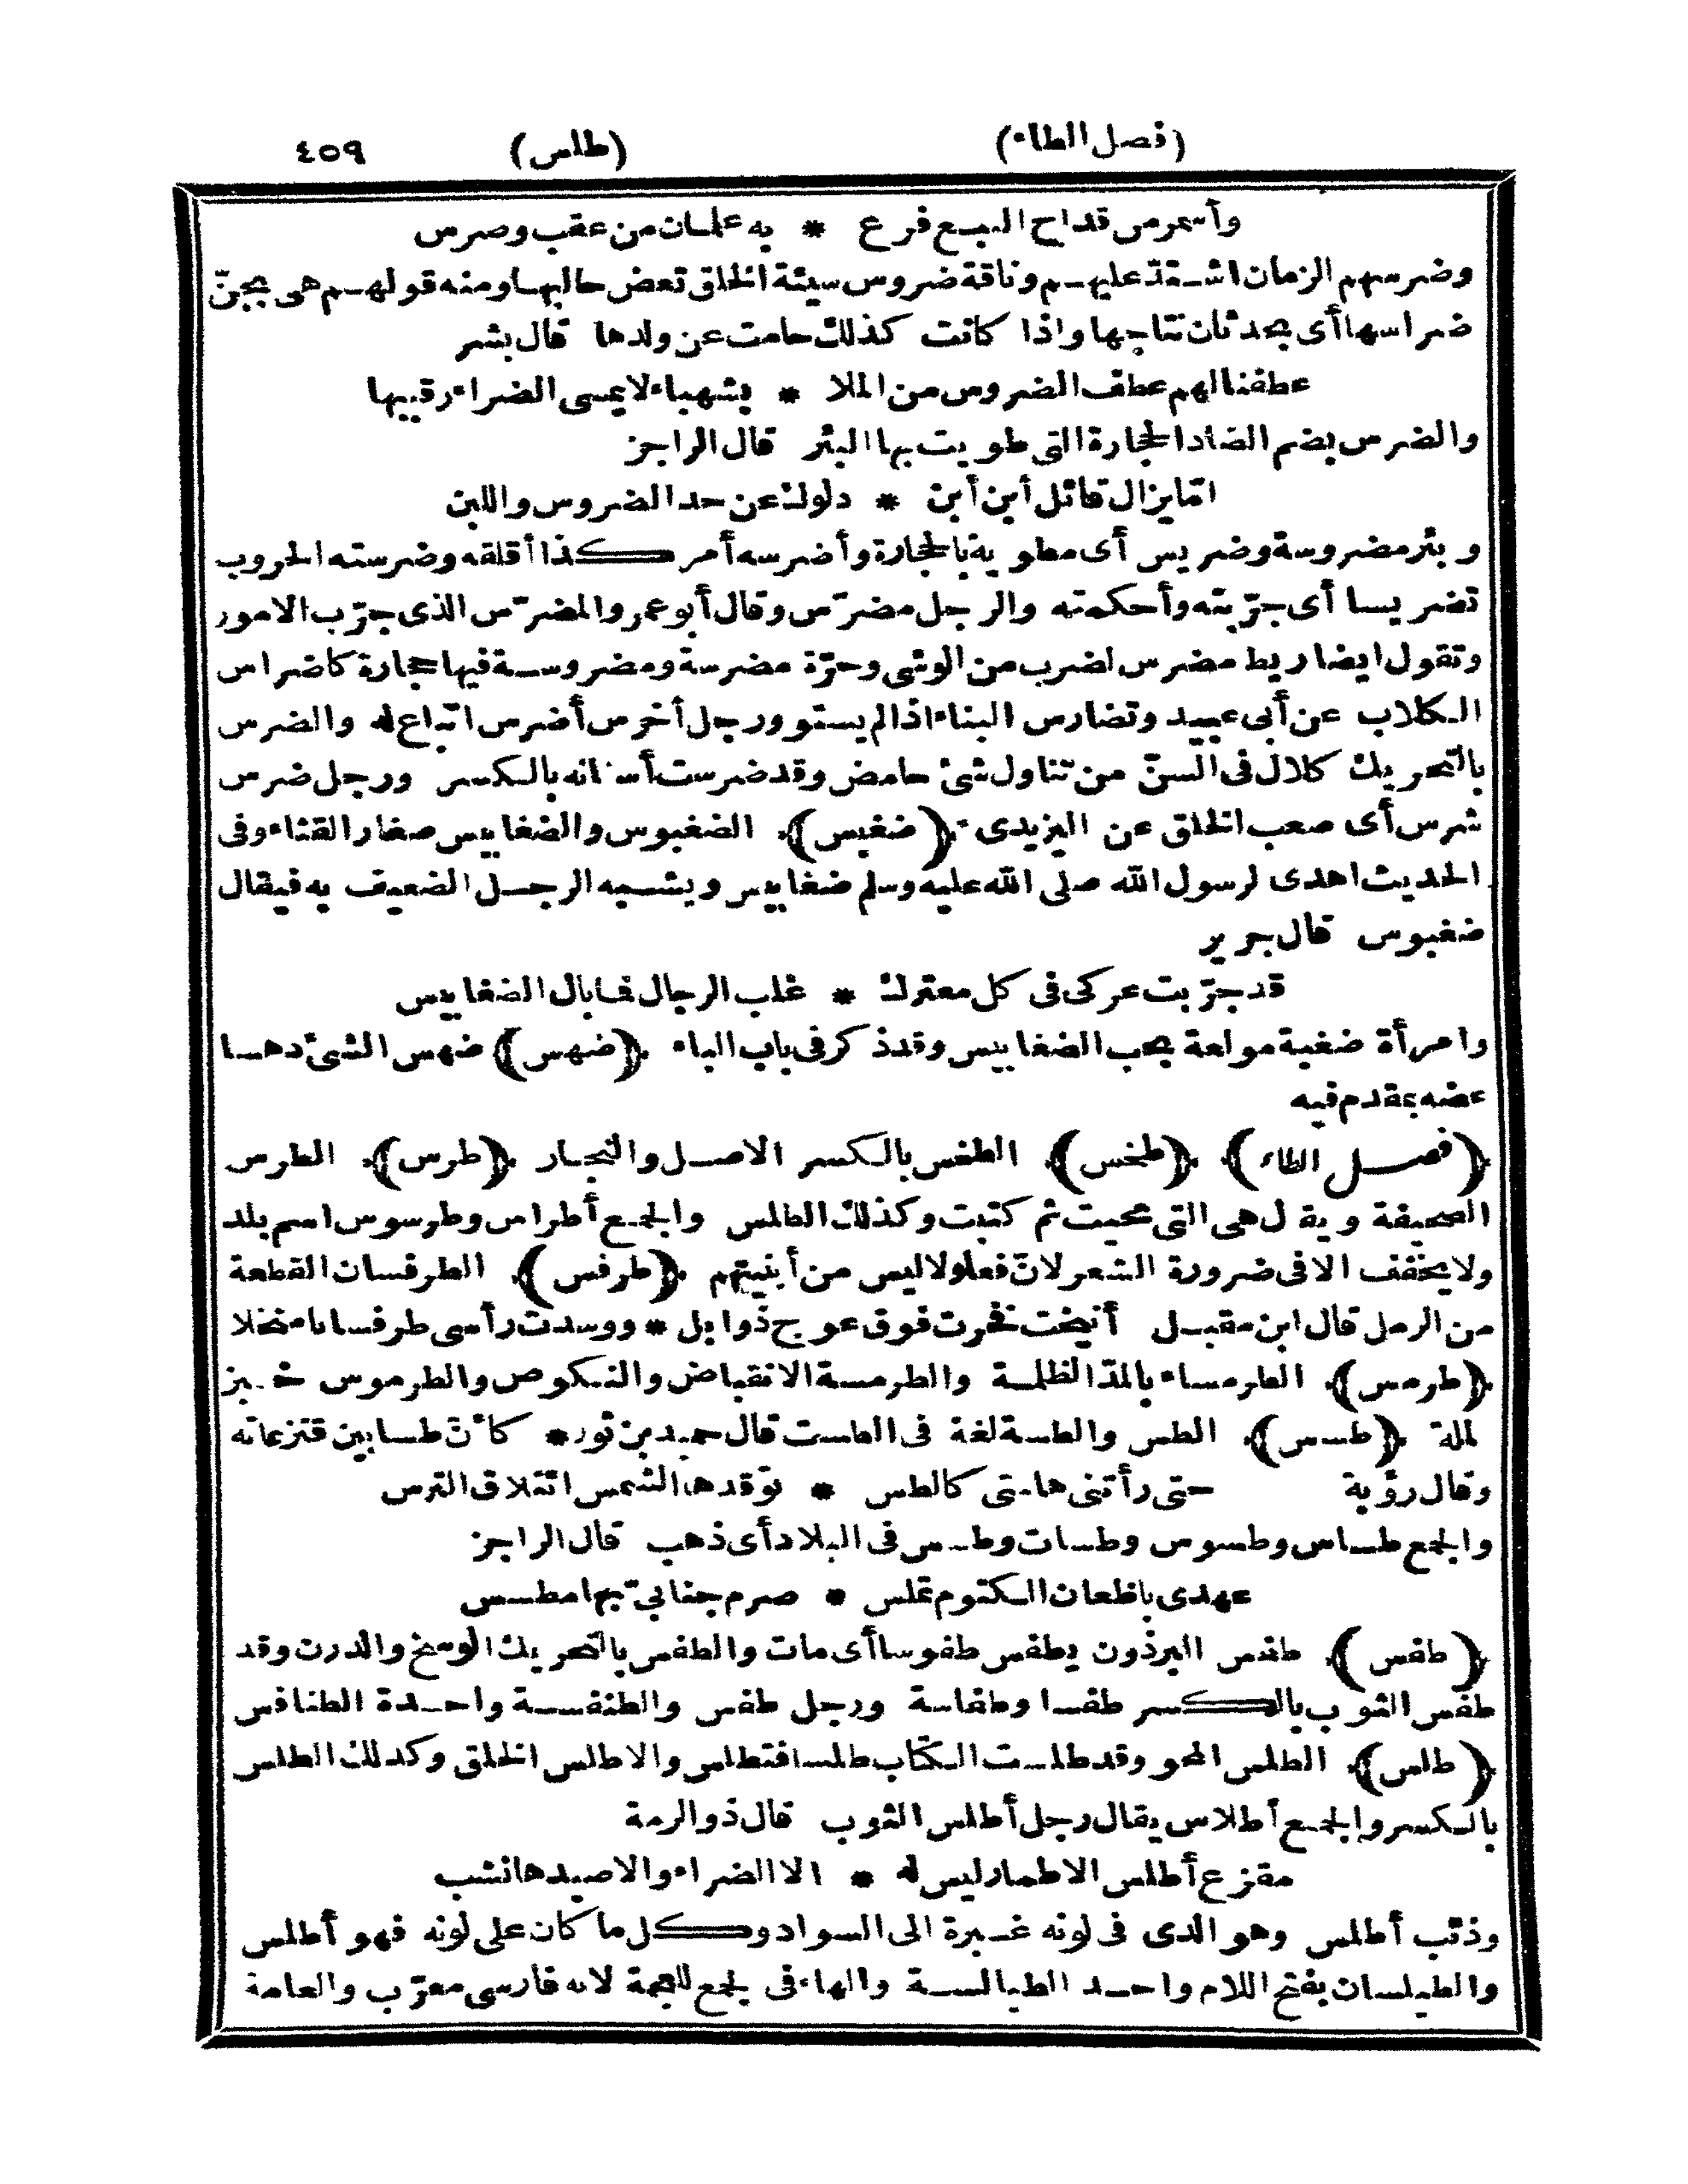 (فصل الطاء) (طلس) ٤٥٩
وأسمر من قداح النبع فرع * به علمان من عقب وضرس
وضرسهم الزمان اشتدّ عليهم وناقة ضروس سيئة الخلق تعض حالبها ومنه قولهم هى بجنّ
ضراسها أى بحدثان نتاجها واذا كانت كذلك حامت عن ولدها قال بشر
عطفنا لهم عطف الضروس من الملا * بشهباء لا يمسى الضراء رقيبها
والضرس بضم الضاد الحجارة التى طويت بها البئر قال الراجز
امّا يزال قائل أبن أبن * دلوك عن حد الضروس واللبن
وبئر مضروسة وضريس أى مطوية بالحجارة وأضرسه أمر كذا أقلقه وضرسته الحروب
تضريسا أى جرّبته وأحكمته والرجل مضرّس وقال أبو عمرو المضرّس الذى جرّب الامور
وتقول ايضا ريط مضرس لضرب من الوشى وحرّة مضرسة ومضروسة فيها حجارة كاضراس
الكلاب عن أبى عبيد وتضارس البناء اذا لم يستو ورجل أخرس أضرس اتباع له والضرس
بالتحريك كلال فى السنّ من تناول شئ حامض وقد ضرست أسنانه بالكسر ورجل ضرس
شرس أى صعب الخلق عن اليزيدى (ضغبس) الضغبوس والضغابيس صغار القثاء وفى
الحديث اهدى لرسول الله صلى الله عليه وسلم ضغابيس ويشبه الرجل الضعيف به فيقال
ضغبوس قال جرير
قد جرّبت عركى فى كل معترك * غلب الرجال فما بال الضغابيس
وامرأة ضغبة مولعة بحب الضغابيس وقد ذكر فى باب الباء (ضهس) ضهس الشئ دهسا
عضه بمقدم فيه
(فصل الطاء) (طخس) الطخس بالكسر الاصل والنجار (طرس) الطرس
الصحيفة ويقال هى التى محيت ثم كتبت وكذلك الطلس والجمع أطراس وطرسوس اسم بلد
ولا يخفف الا فى ضرورة الشعر لانّ فعلولا ليس من أبنيتهم (طرفس) الطرفسان القطعة
من الرمل قال ابن مقبل أنيخت فخرت فوق عوج ذوابل * ووسدت رأسى طرفسانا منخلا
(طرمس) الطرمساء بالمدّ الظلمة والطرمسة الانقباض والنكوص والطرموس خبز
الملة (طسس) الطس والطسة لغة فى الطست قال حميد بن ثور * كأنّ طسا بين قنزعاته
وقال رؤبة حتى رأتنى هامتى كالطس * توقدها الشمس ائتلاق الترس
والجمع طساس وطسوس وطسات وطس فى البلاد أى ذهب قال الراجز
عهدى باظعان الكتوم تملس * صرم جنابىّ بها مطسس
(طفس) طفس البرذون يطفس طفوسا أى مات والطفس بالتحريك الوسخ والدرن وقد
طفس الثوب بالكسر طفسا وطفاسة ورجل طفس والطنفسة واحدة الطنافس
(طلس) الطلس المحو وقد طلست الكتاب طلسا فتطلس والاطلس الخلق وكذلك الطلس
بالكسر والجمع أطلاس يقال رجل أطلس الثوب قال ذو الرمة
مقزع أطلس الاطمار ليس له * الا الضراء والا صيدها نشب
وذئب أطلس وهو الذى فى لونه غبرة الى السواد وكل ما كان على لونه فهو أطلس
والطيلسان بفتح اللام واحد الطيالسة والهاء فى الجمع للعجمة لانه فارسى معرّب والعامة